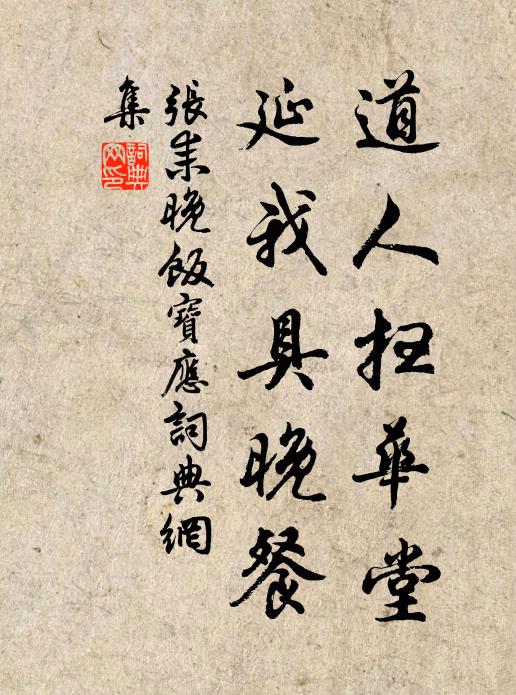 道人扫華堂
延我具晚餐
張耒晚飯寶應詞典網
集
詞典
网印